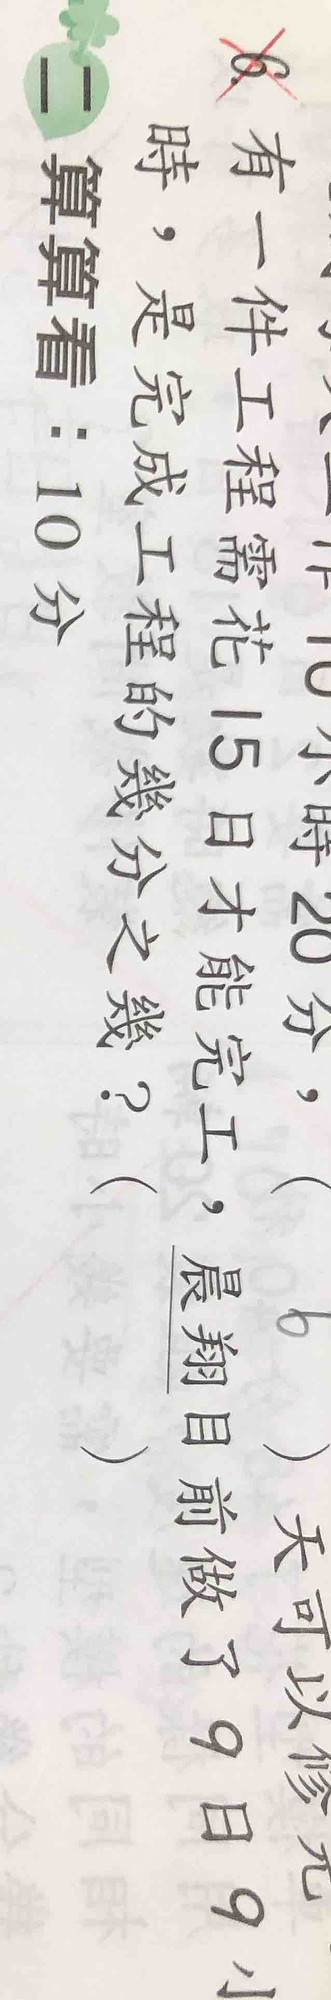 工作10小時20分，( 6 )天可以修完
6. 有一件工程需花15日才能完工，晨翔目前做了9日9小
時，是完成工程的幾分之幾？( )
二 算算看：10分